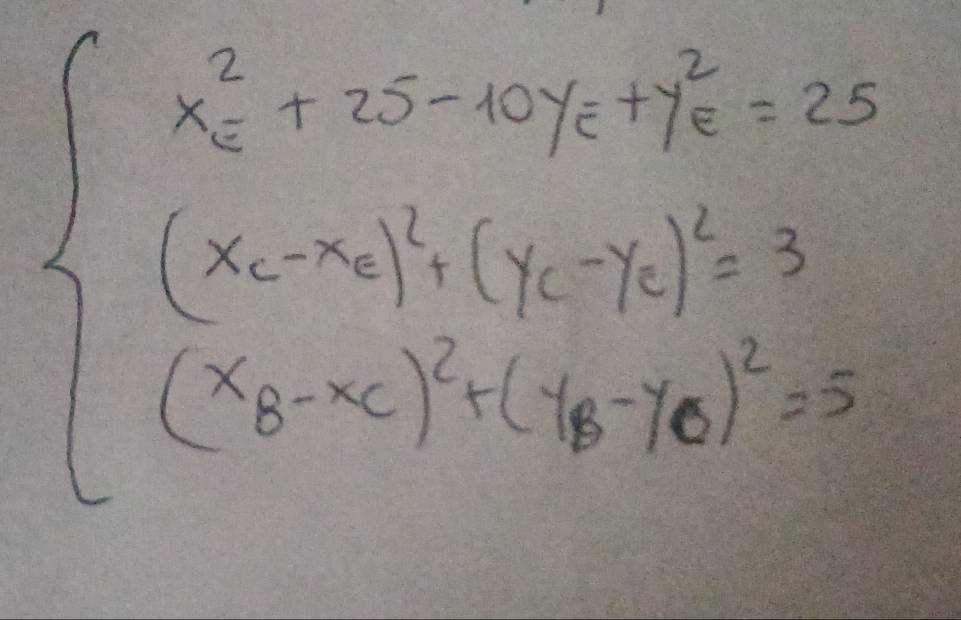 x_E^2 + 25 - 10y_E + y_E^2 = 25
(x_C - x_E)^2 + (y_C - y_E)^2 = 3
(x_B - x_C)^2 + (y_B - y_C)^2 = 5